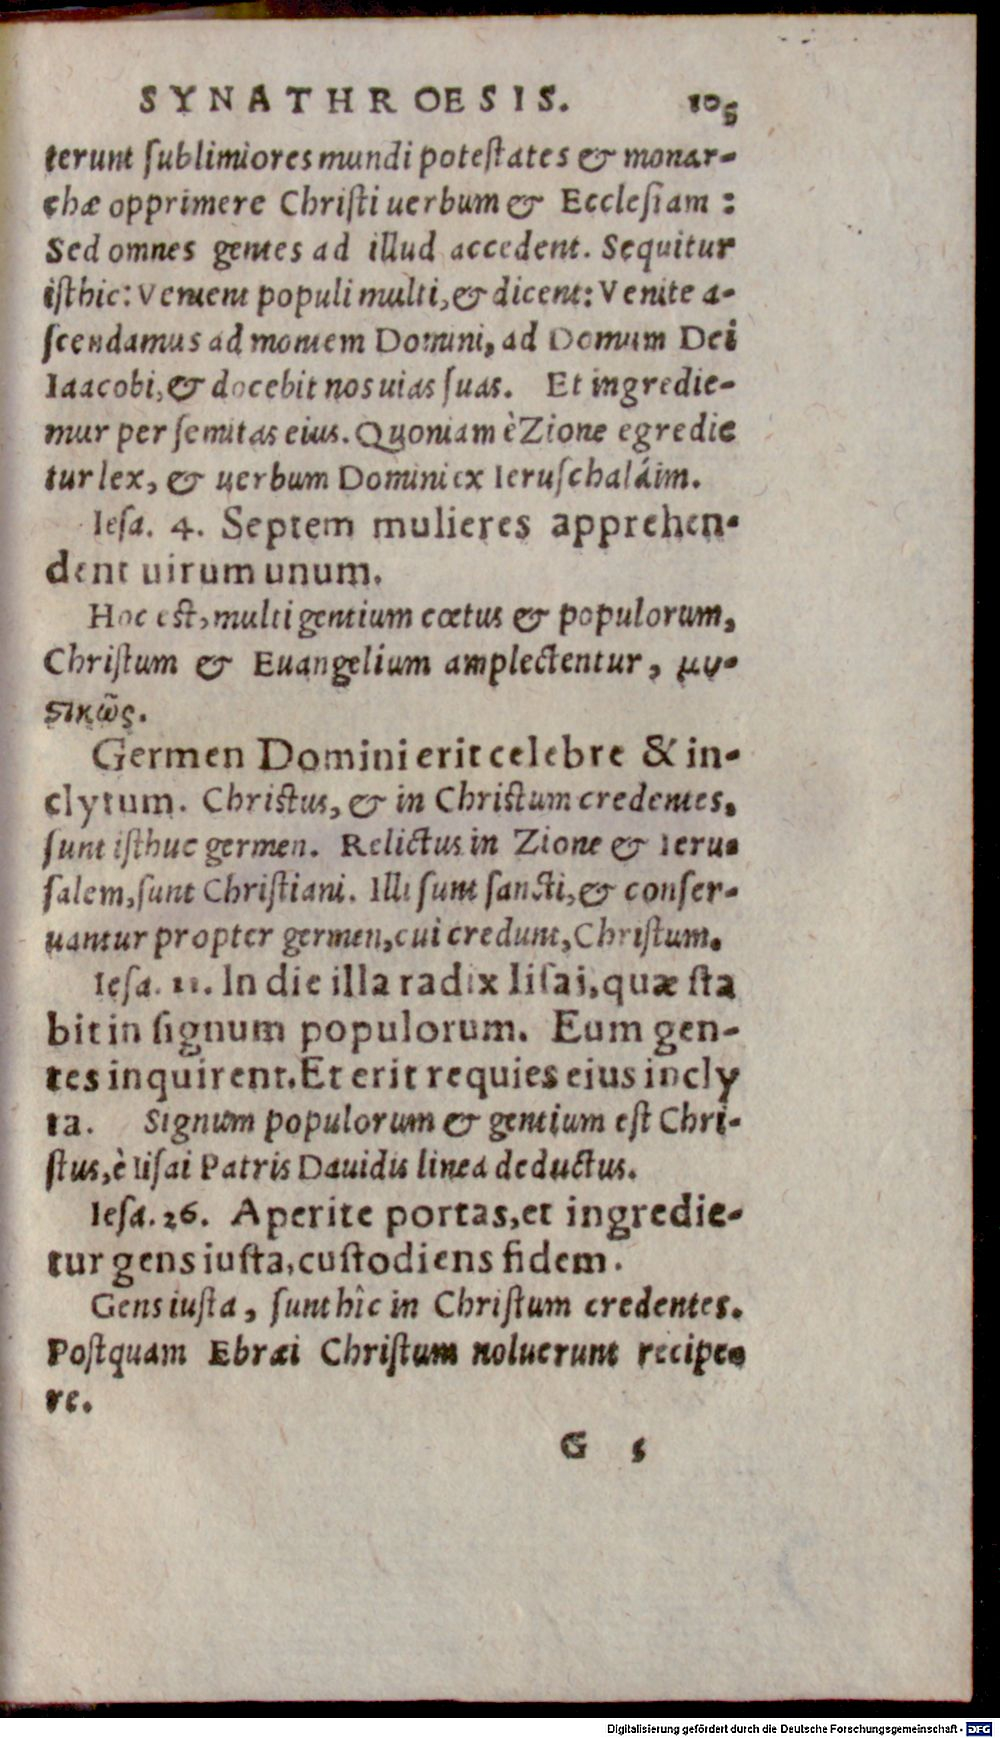 SYNATHROESIS. 105
terunt ſublimiores mundi poteſtates & monar-
chæ opprimere Chriſti uerbum & Eccleſiam :
Sed omnes gentes ad illud accedent. Sequitur
iſthic: Venient populi multi, & dicent: Venite a-
ſcendamus ad montem Domini, ad Domum Dei
Iaacobi, & docebit nos uias ſuas. Et ingredie-
mur per ſemitas eius. Quoniam è Zione egredie
tur lex, & uerbum Domini ex Ieruſchaláim.
Ieſa. 4. Septem mulieres apprehen-
dent uirum unum.
Hoc eſt, multi gentium cœtus & populorum,
Chriſtum & Euangelium amplectentur, μυ-
ϛικῶς.
Germen Domini erit celebre & in-
clytum. Chriſtus, & in Chriſtum credentes,
ſunt iſthuc germen. Relictus in Zione & Ieru-
ſalem, ſunt Chriſtiani. Illi ſunt ſancti, & conſer-
uantur propter germen, cui credunt, Chriſtum.
Ieſa. 11. In die illa radix Iiſai, quæ ſta
bit in ſignum populorum. Eum gen-
tes inquirent. Et erit requies eius incly
ta. Signum populorum & gentium eſt Chri-
ſtus, è Iiſai Patris Dauidis linea deductus.
Ieſa. 26. Aperite portas, et ingredie-
tur gens iuſta, cuſtodiens fidem.
Gens iuſta, ſunt hîc in Chriſtum credentes.
Poſtquam Ebræi Chriſtum noluerunt recipe-
re.
G 5
Digitalisierung gefördert durch die Deutsche Forschungsgemeinschaft - DFG